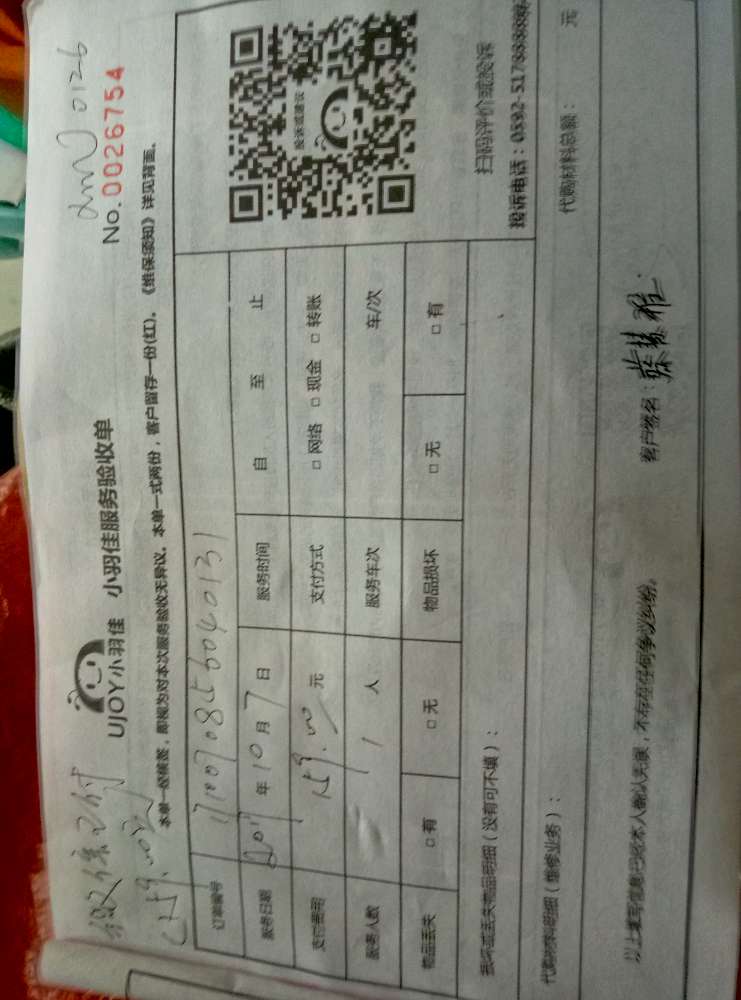 微信已付
159.00元
0126
No. 0026754
UJOY小羽佳 小羽佳服务验收单
本单一经核签，即视为对本次服务验收无异议。本单一式两份，客户留存一份(红)。《维保须知》详见背面。
订单编号
服务日期 2017年10月7日 服务时间 自 至 止
支付费用 159.00元 支付方式 □网络 □现金 □转账
服务人数 1 人 服务车次 车/次
物品丢失 □有 □无 物品损坏 □无 □有
投诉或建议
扫码评价或投诉
投诉电话：0592-5178888
损坏或丢失物品明细（没有可不填）：
代购材料明细（维修业务）： 代购材料总额： 元
以上填写信息已经本人确认无误，不存在任何争议纠纷。 客户签名：